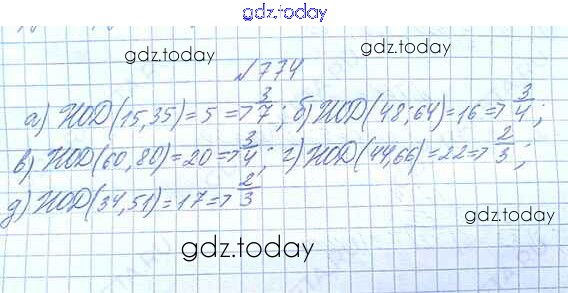 gdz.today
gdz.today
gdz.today
№774
а) НОД(15,35)=5=>3/7; б) НОД(48;64)=16=>3/4;
в) НОД(60,80)=20=>3/4; г) НОД(44,66)=22=>2/3;
д) НОД(34,51)=17=>2/3
gdz.today
gdz.today